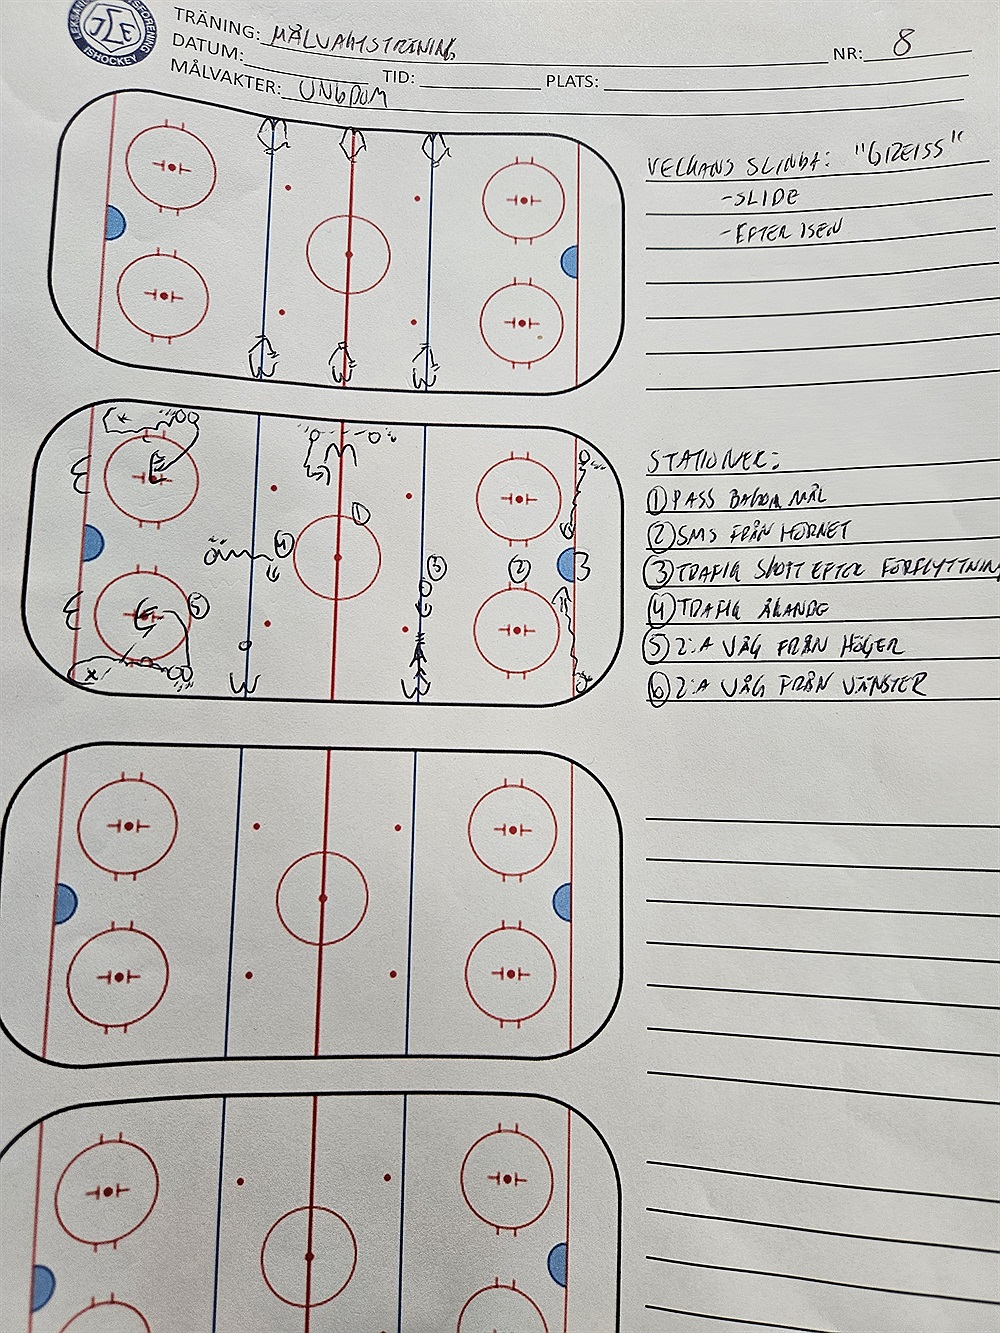 LEKSANDS IDROTTSFÖRENING
ISHOCKEY
TRÄNING: MÅLVAKTSTRÄNING
NR: 8
DATUM:
TID:
PLATS:
MÅLVAKTER: UNGDOM
VECKANS SLINGA: "GREISS"
-SLIDE
-EFTER ISEN
STATIONER:
① PASS BAKOM MÅL
② SMS FRÅN HÖRNET
③ TRAFIK SKOTT EFTER FÖRFLYTTNIN
④ TRAFIK ÅKANDE
⑤ 2:A VÅG FRÅN HÖGER
⑥ 2:A VÅG FRÅN VÄNSTER
①
④
③
②
⑤